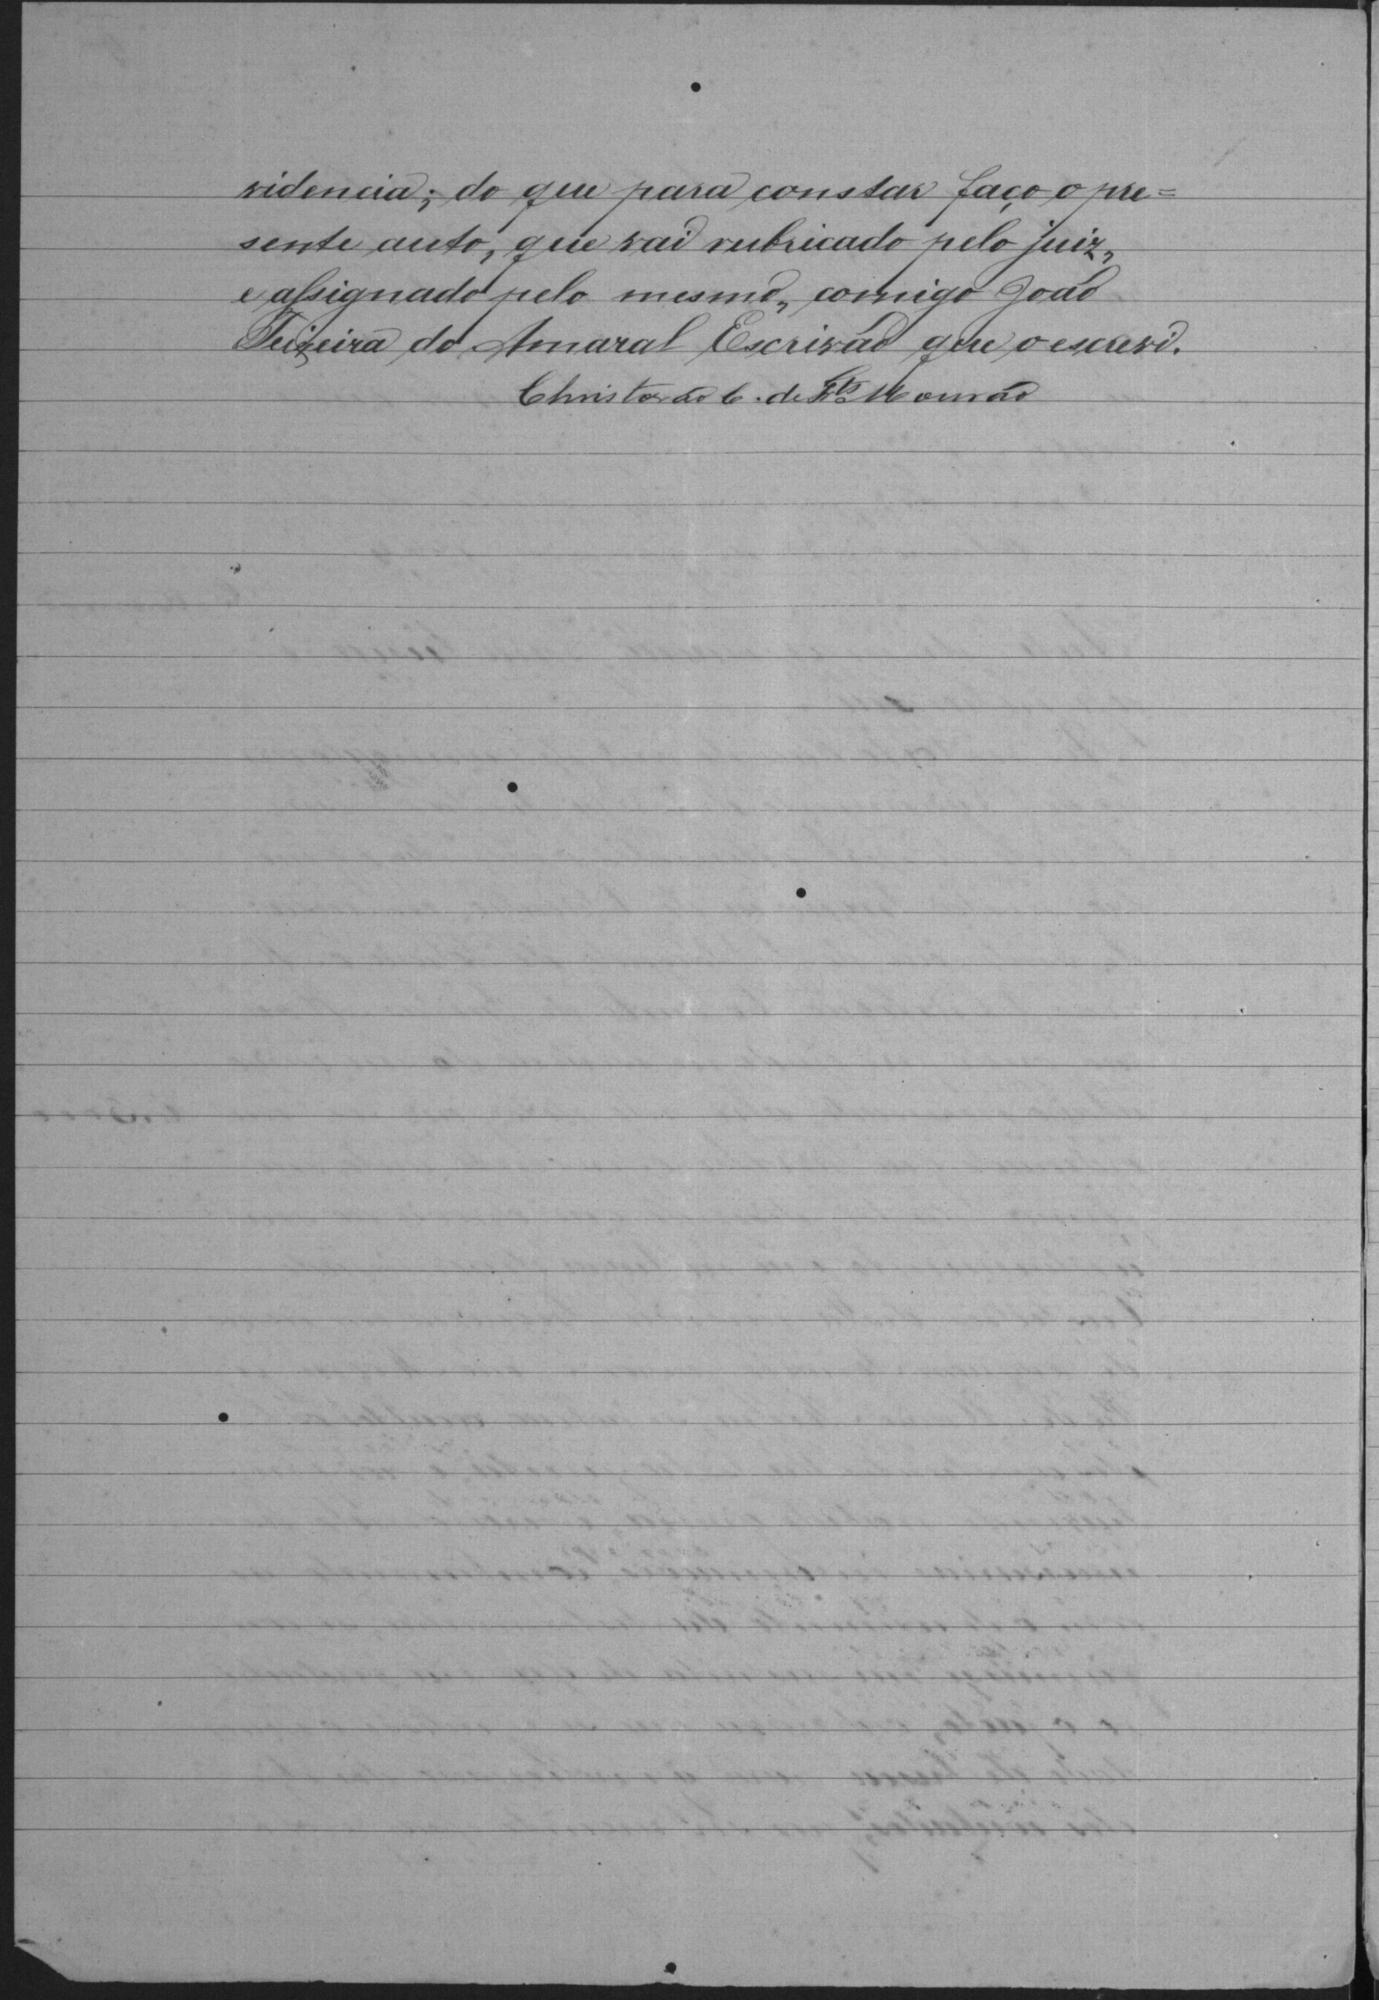 videncia; do que para constar faço o pre=
sente auto, que vai rubricado pelo juiz,
e assignado pelo mesmo, comigo João
Teixeira do Amaral Escrivão que o escrevi.
Christovão C. de Mourão